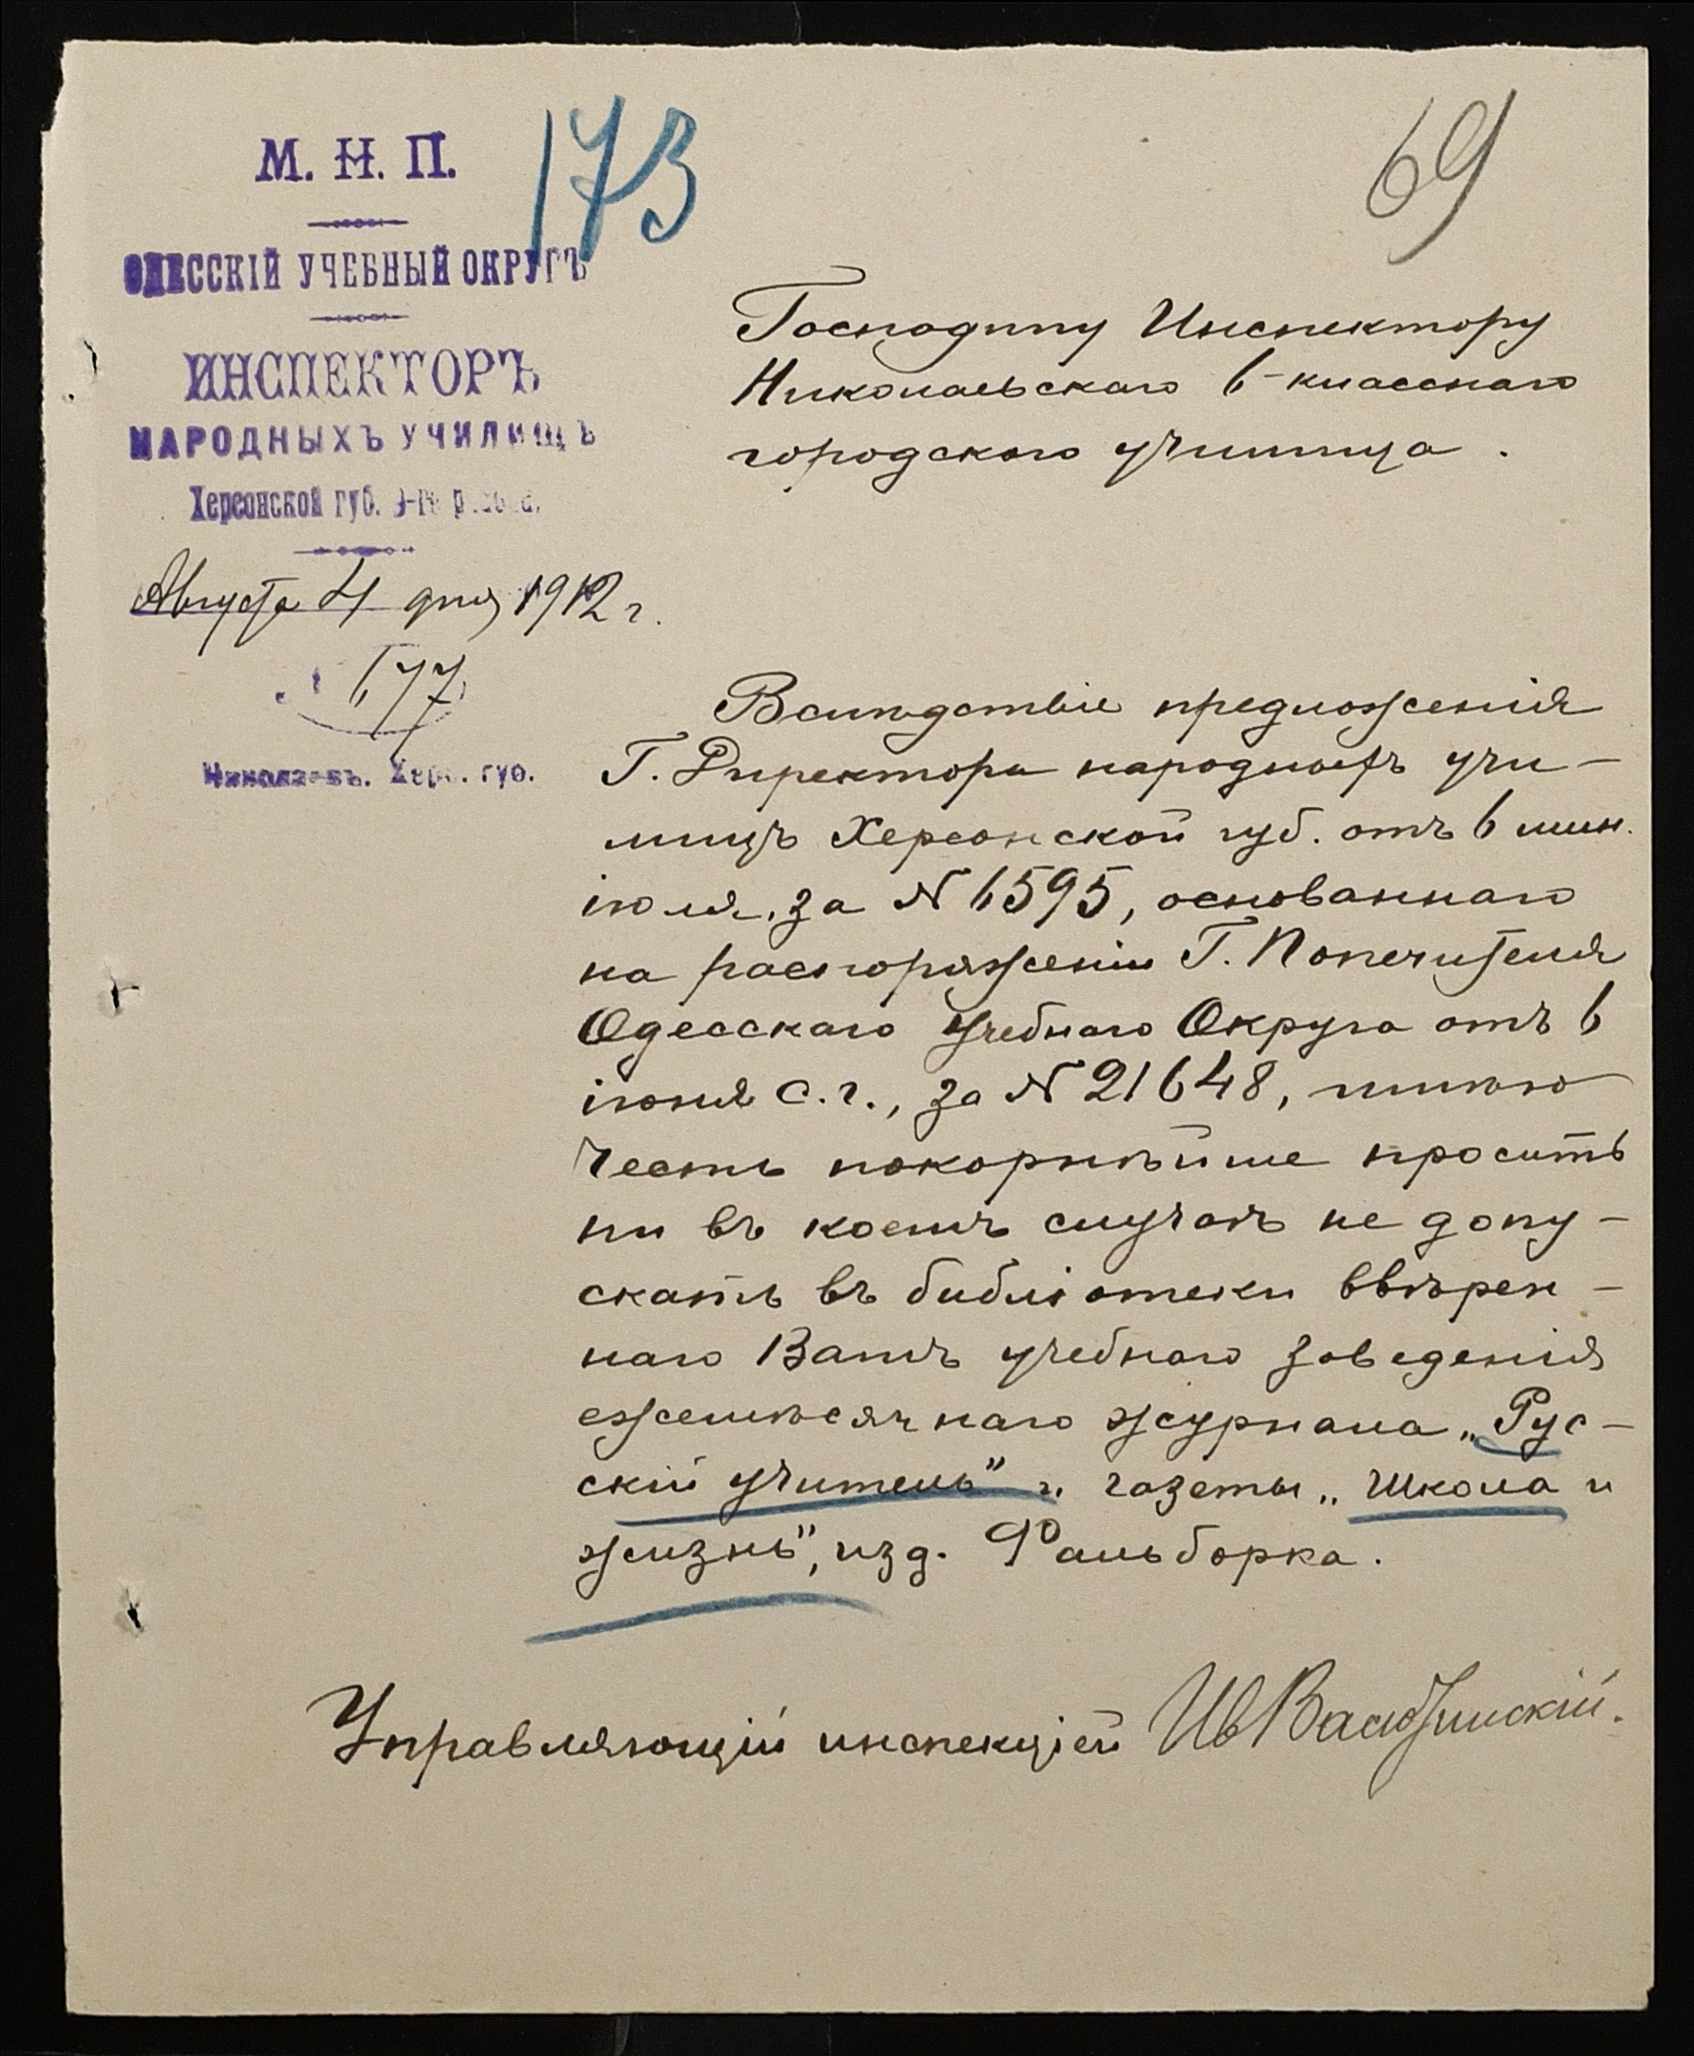 М. Н. П.
173
69
ОДЕССКІЙ УЧЕБНЫЙ ОКРУГЪ
ИНСПЕКТОРЪ
НАРОДНЫХЪ УЧИЛИЩЪ
Херсонской губ.
Августа 4 дня 1912 г.
177
Николаевъ. Херс. губ.
Господину Инспектору
Николаевскаго 6-класснаго
городского училища.
Вслѣдствіе предложенія
Г. Директора народныхъ учи-
лищъ Херсонской губ. отъ 6 мин.
іюля, за N 6595, основаннаго
на распоряженіи Г. Попечителя
Одесскаго Учебнаго Округа отъ 6
іюня с. г., за N 21648, имѣю
честь покорнѣйше просить
ни въ коемъ случаѣ не допу-
скать въ библіотеки ввѣрен-
наго Вамъ учебнаго заведенія
ежемѣсячнаго журнала „Рус-
скій учитель" и газеты „Школа и
жизнь", изд. Фальборка.
Управляющій инспекціей